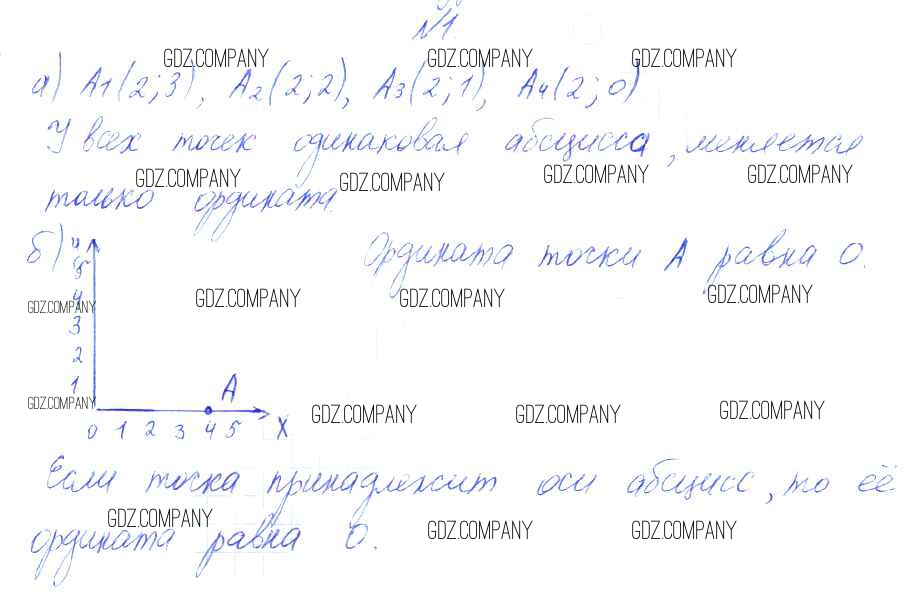 №1.
GDZ.COMPANY GDZ.COMPANY GDZ.COMPANY
а) A1(2;3), A2(2;2), A3(2;1), A4(2;0)
У всех точек одинаковая абсцисса, меняется
GDZ.COMPANY GDZ.COMPANY GDZ.COMPANY GDZ.COMPANY
только ордината.
б) y Ордината точки A равна 0.
5
4
GDZ.COMPANY GDZ.COMPANY GDZ.COMPANY GDZ.COMPANY
3
2
1 A
GDZ.COMPANY GDZ.COMPANY GDZ.COMPANY GDZ.COMPANY
0 1 2 3 4 5 X
Если точка принадлежит оси абсцисс, то её
GDZ.COMPANY GDZ.COMPANY GDZ.COMPANY
ордината равна 0.